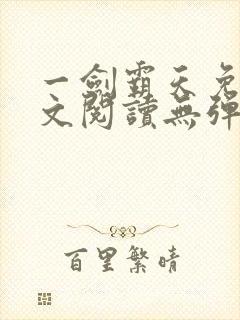 一劍霸天免
文閱讀無彈
百里繁晴